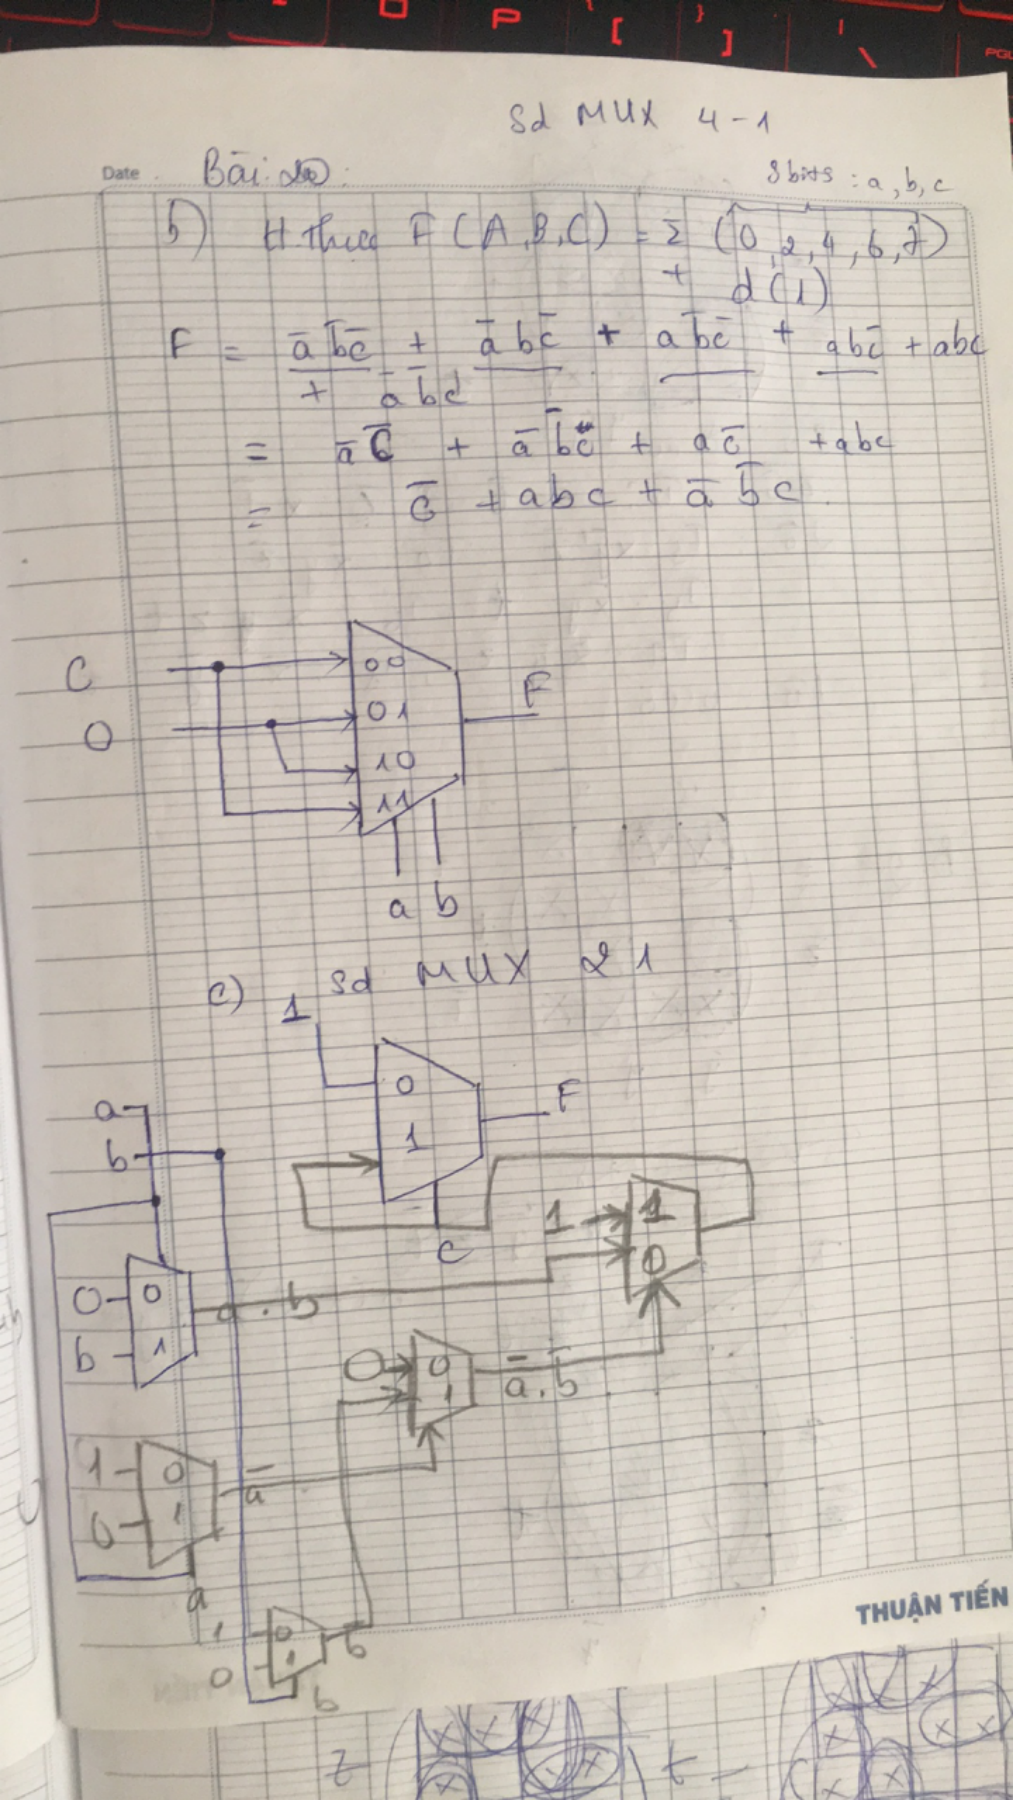 O P { [ } ] ' \
Sd MUX 4-1
Date Bài 20:
8 bits : a, b, c
b) H. thức F (A, B, C) = Σ (0, 2, 4, 6, 7)
+ d (1)
F = a̅b̅c̅ + a̅bc̅ + ab̅c̅ + abc̅ + abc
+ a̅b̅c
= a̅c̅ + a̅b̅c + ac̅ + abc
= c̅ + abc + a̅b̅c
C 00 F
0 01
10
11
a b
c) Sd MUX 2 1
1
0 F
a 1
b
1 1
c
0 0 a.b 0
b 1
0 0 a̅.b̅
1
1 0 a̅
0 1
a
1 0 b̅
0 1
b
THUẬN TIẾN